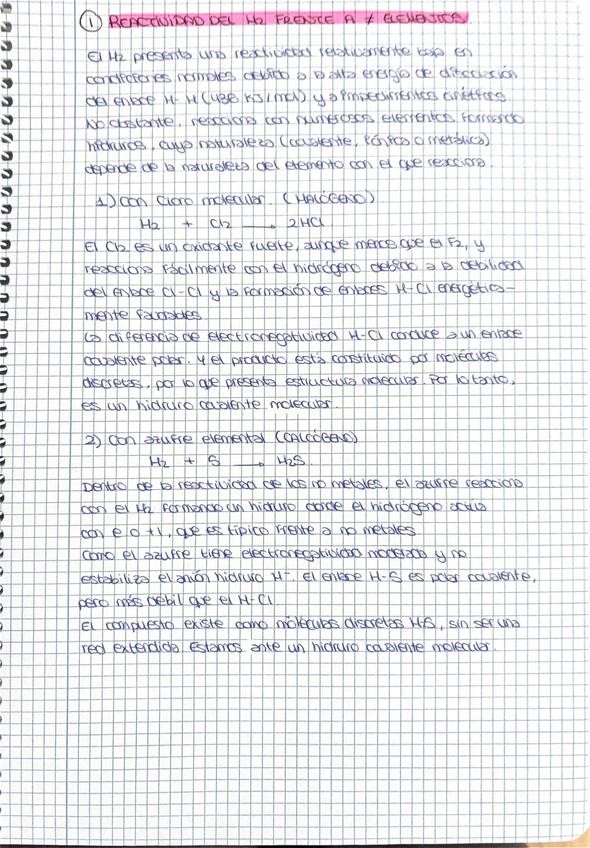 ① REACTIVIDAD DEL H2 FRENTE A ≠ ELEMENTOS
El H2 presenta una reactividad relativamente baja en
condiciones normales debido a la alta energía de disociación
del enlace H-H (438 KJ/mol) y a impedimentos cinéticos.
No obstante, reacciona con numerosos elementos formando
hidruros, cuya naturaleza (covalente, iónica o metálica)
depende de la naturaleza del elemento con el que reacciona.
1) Con cloro molecular. (HALÓGENO)
H2 + Cl2 → 2HCl
El Cl2 es un oxidante fuerte, aunque menos que el F2, y
reacciona fácilmente con el hidrógeno debido a la debilidad
del enlace Cl-Cl y la formación de enlaces H-Cl energética-
mente favorables.
La diferencia de electronegatividad H-Cl conduce a un enlace
covalente polar. Y el producto está constituido por moléculas
discretas, por lo que presenta estructura molecular. Por lo tanto,
es un hidruro covalente molecular.
2) Con azufre elemental (CALCÓGENO)
H2 + S → H2S.
Dentro de la reactividad de los no metales, el azufre reacciona
con el H2 formando un hidruro donde el hidrógeno actúa
con e.o +1, que es típico frente a no metales
Como el azufre tiene electronegatividad moderada y no
estabiliza el anión hidruro H-. El enlace H-S es polar covalente,
pero más débil que el H-Cl.
El compuesto existe como moléculas discretas H2S, sin ser una
red extendida. Estamos ante un hidruro covalente molecular.